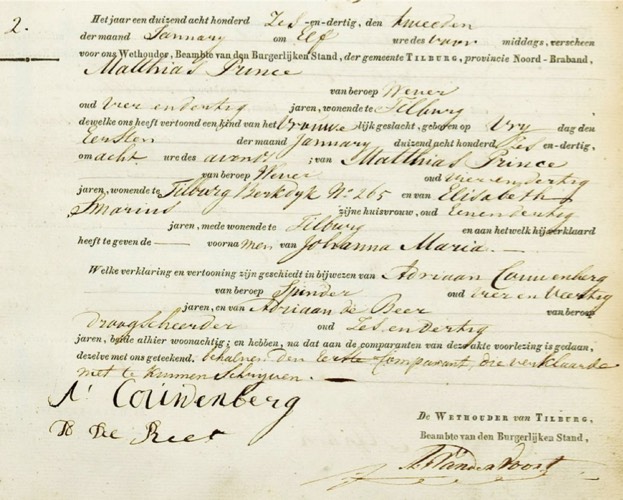 2.
Het jaar een duizend acht honderd Zes -en-dertig, den tweeden
der maand January om Elf ure des voor middags, verscheen
voor ons Wethouder, Beambte van den Burgerlijken Stand, der gemeente TILBURG, provincie Noord-Braband,
Matthias Prince
van beroep Wever
oud vier en dertig jaren, wonende te Tilburg
dewelke ons heeft vertoond een kind van het Vrouwe lijk geslacht, geboren op Vry dag den
Eersten der maand January duizend acht honderd Zes en-dertig,
om acht ure des avonds; van Matthias Prince
van beroep Wever oud vier en dertig
jaren, wonende te Tilburg Berkdyk No 265 en van Elisabeth
Smarius zijne huisvrouw, oud Eenendertig
jaren, mede wonende te Tilburg en aan het welk hij verklaard
heeft te geven de — voorna men van Johanna Maria. —
Welke verklaring en vertooning zijn geschied in bijwezen van Adriaan Couwenberg
van beroep Spinder oud vier en Veertig
jaren, en van Adriaan de Beer van beroep
droogscheerder oud Zes en dertig
jaren, beide alhier woonachtig; en hebben, na dat aan de comparanten van deze akte voorlezing is gedaan,
dezelve met ons geteekend. behalven den eerste Comparant, die verklaarde
niet te kunnen Schryven. —
A. Couwenberg
De Beer
De WETHOUDER van TILBURG,
Beambte van den Burgerlijken Stand,
van der Voort